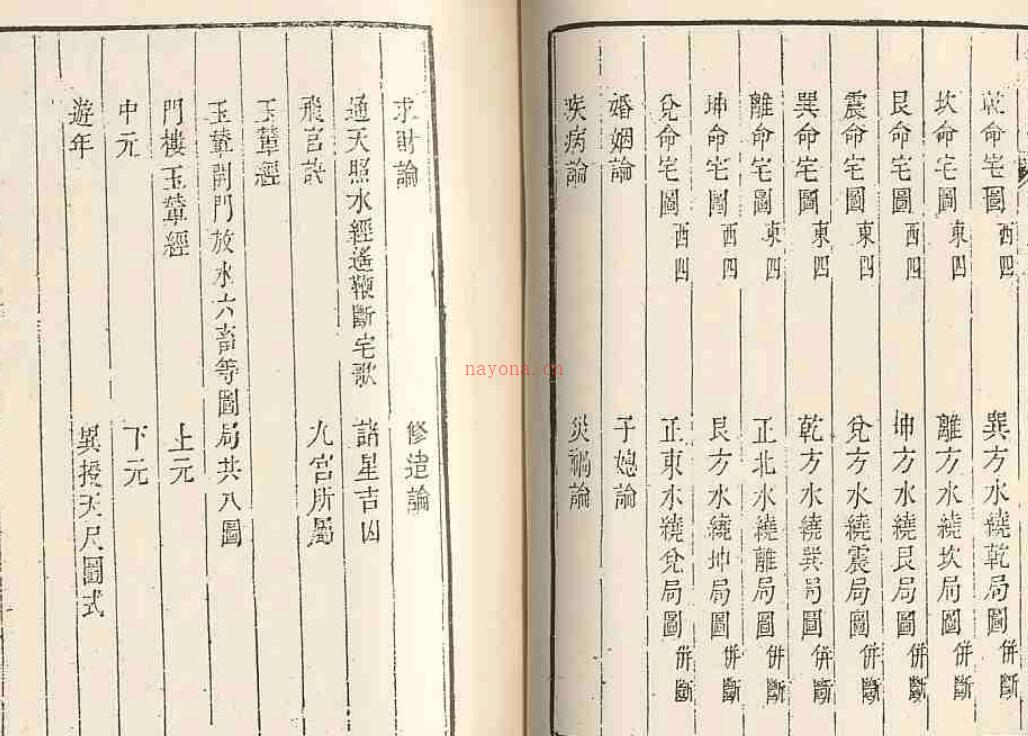 乾命宅圖西四 巽方水繞乾局圖併斷
坎命宅圖東四 離方水繞坎局圖併斷
艮命宅圖西四 坤方水繞艮局圖併斷
震命宅圖東四 兌方水繞震局圖併斷
巽命宅圖東四 乾方水繞巽局圖併斷
離命宅圖東四 正北水繞離局圖併斷
坤命宅圖西四 艮方水繞坤局圖併斷
兌命宅圖西四 正東水繞兌局圖併斷
婚姻論 子媳論
疾病論 災禍論
求財論 修造論
通天照水經遙鞭斷宅歌 諸星吉凶
飛宮訣 九宮所屬
玉輦經
玉輦開門放水六畜等圖局共八圖
門樓玉輦經 上元
中元 下元
遊年 異授天尺圖式
nayona.cn